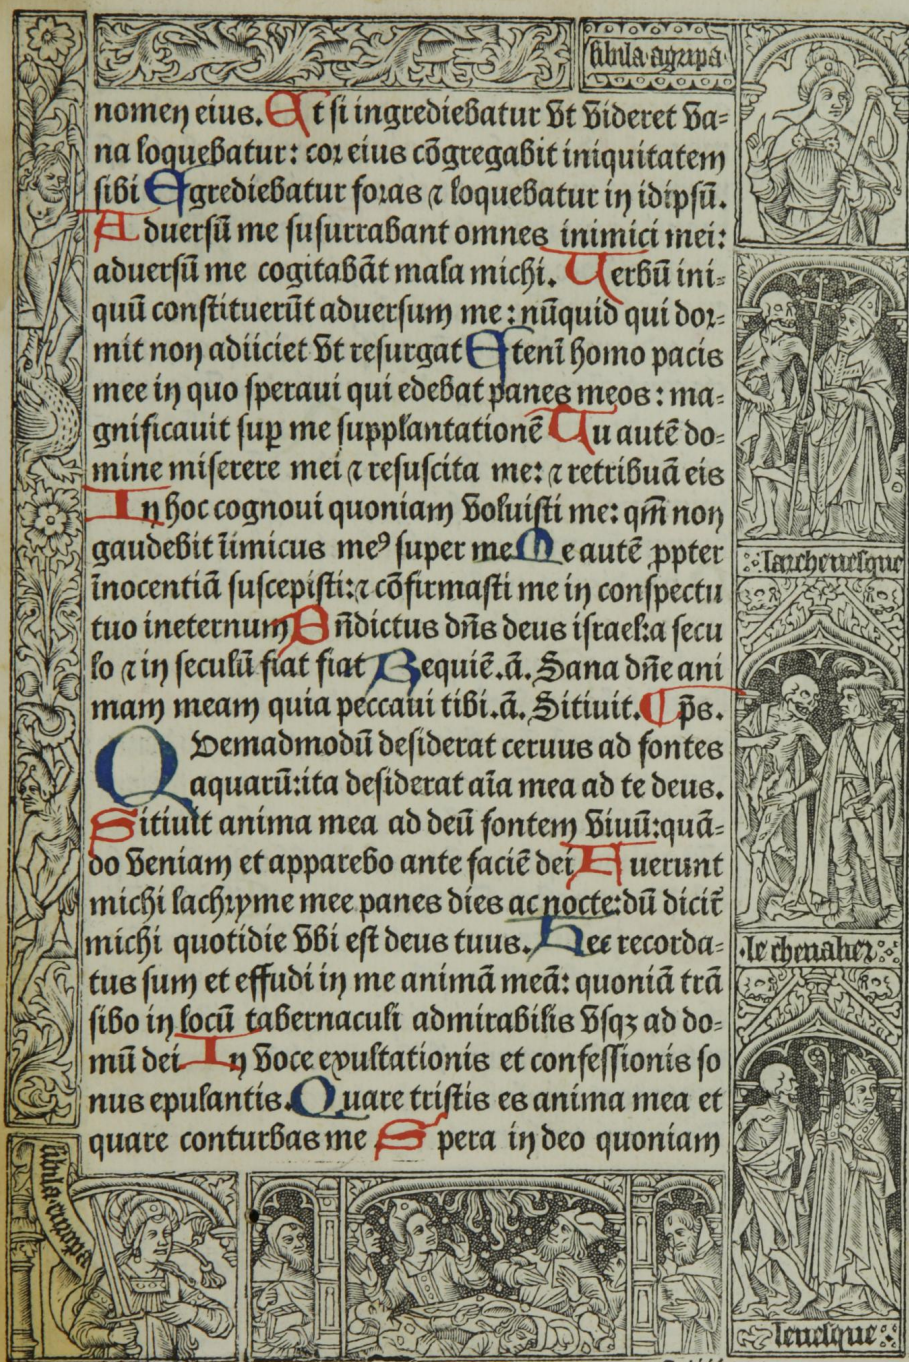 sibila agripa
nomen eius. Et si ingrediebatur vt videret va-
na loquebatur: cor eius cōgregabit iniquitatem
sibi Egrediebatur foras ⁊ loquebatur in idipsū.
Aduersū me susurrabant omnes inimici mei:
aduersū me cogitabāt mala michi. Uerbū ini-
quū constituerūt aduersum me: nūquid qui dor-
mit non adiiciet vt resurgat Etenī homo pacis
mee in quo speraui qui edebat panes meos: ma-
gnificauit suꝑ me supplantationē Tu autē do-
mine miserere mei ⁊ resuscita me: ⁊ retribuā eis
In hoc cognoui quoniam voluisti me: qm̄ non
gaudebit īimicus meꝰ super me Me autē ꝓpter
īnocentiā suscepisti: ⁊ cōfirmasti me in conspectu
tuo ineternum Bn̄dictus dn̄s deus israel: a secu
lo ⁊ in seculū fiat fiat Requiē. ā. Sana dn̄e ani
mam meam quia peccaui tibi. ā. Sitiuit. p̄s.
Quemadmodū desiderat ceruus ad fontes
aquarū: ita desiderat aīa mea ad te deus.
Sitiuit anima mea ad deū fontem viuū: quā-
do veniam et apparebo ante faciē dei Fuerunt
michi lachryme mee panes dies ac nocte: dū dicit̄
michi quotidie vbi est deus tuus. Hec recorda-
tus sum et effudi in me animā meā: quoniā trā
sibo in locū tabernaculi admirabilis vsqꝫ ad do-
mū dei In voce exultationis et confessionis so
nus epulantis. Quare tristis es anima mea et
quare conturbas me Spera in deo quoniam
larcheuesque
le cheualier
leuesque